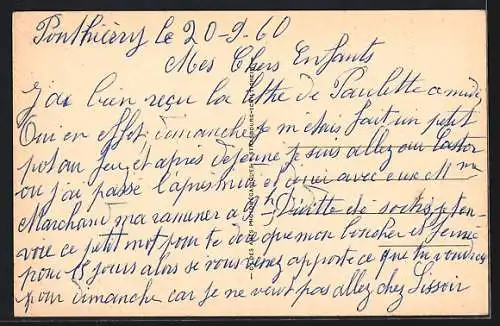 Ponthiérry le 20-9-60
Mes Chers Enfants
J'ai bien reçu la lettre de Paulette a midi
Oui en effet, dimanche je m'étais fait un petit
pot au feu et apres dejeuné je suis allez au Castor
ou j'ai passé l'apres midi et diné avec eux Mme
Marchand ma ramuner a 9h Ginette de sochis je ten-
voie ce petit mot pour te dire que mon boucher est fermé
pour 15 jours alors si vous venez apporte ce que tu voudras
pour dimanche car je ne veut pas allez chez Lissoir